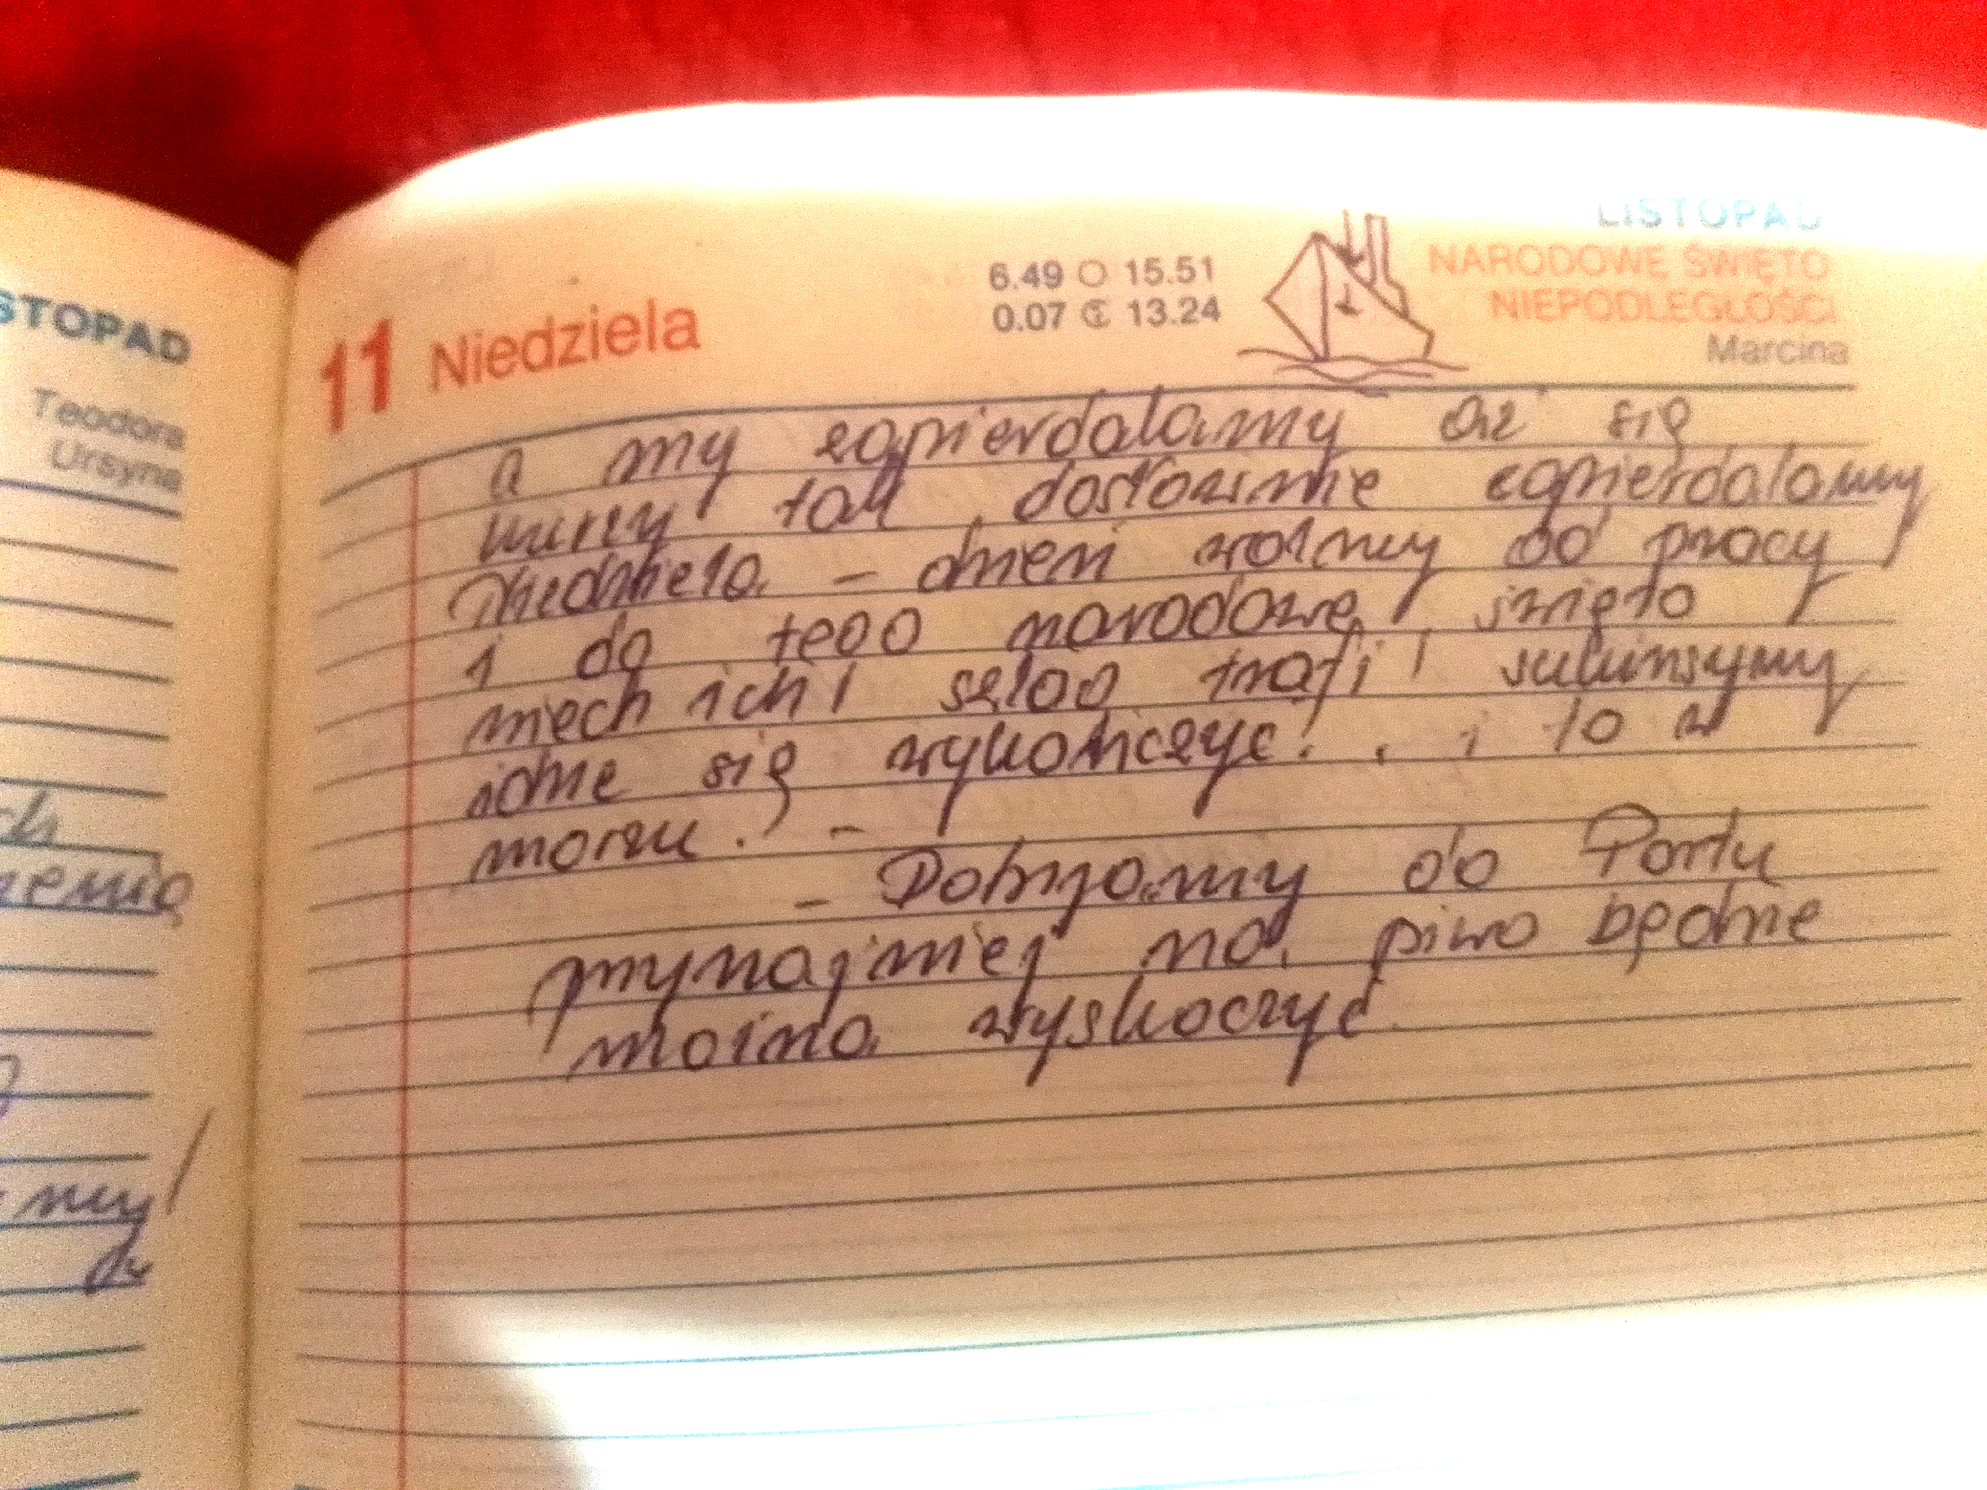 STOPAD
Teodora
Ursyna
ch
my!
LISTOPAD
NARODOWE ŚWIĘTO
NIEPODLEGŁOŚCI
Marcina
6.49 15.51
0.07 13.24
11 Niedziela
a my zapierdalamy aż się
kurzy tak dosłownie zapierdalamy
Niedziela – dzień wolny od pracy
i do tego narodowe święto
niech ich szlag trafi! sukinsyny
idzie się wykończyć! . i to w
morzu! –
– Dobijamy do Portu
przynajmniej na piwo będzie
można wyskoczyć.